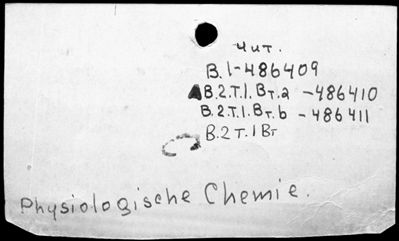 Чит.
B.1-486409
B.2.T.1.Bт.a -486410
B.2.T.1.Bт.b -486411
B.2T.1Bт
Physiologische Chemie.